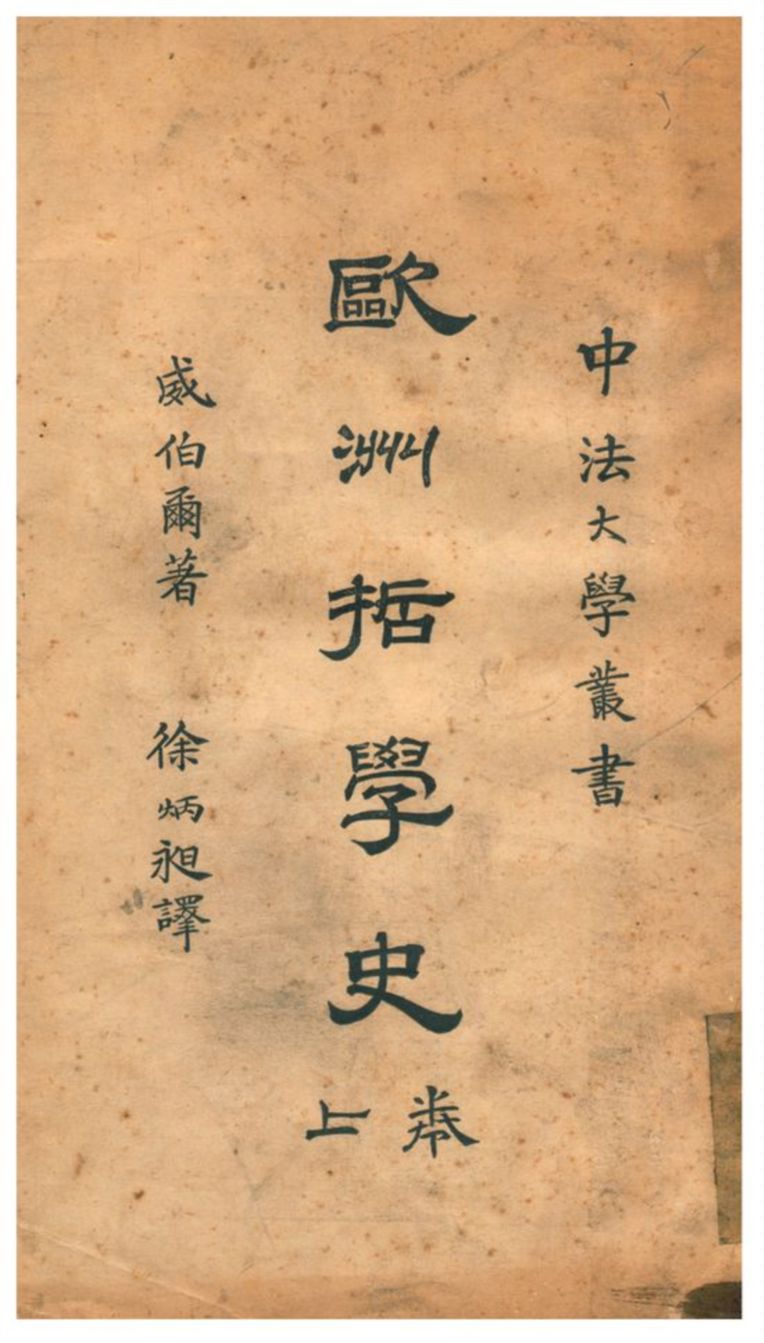 中法大學叢書
歐洲哲學史
卷上
威伯爾著 徐炳昶譯